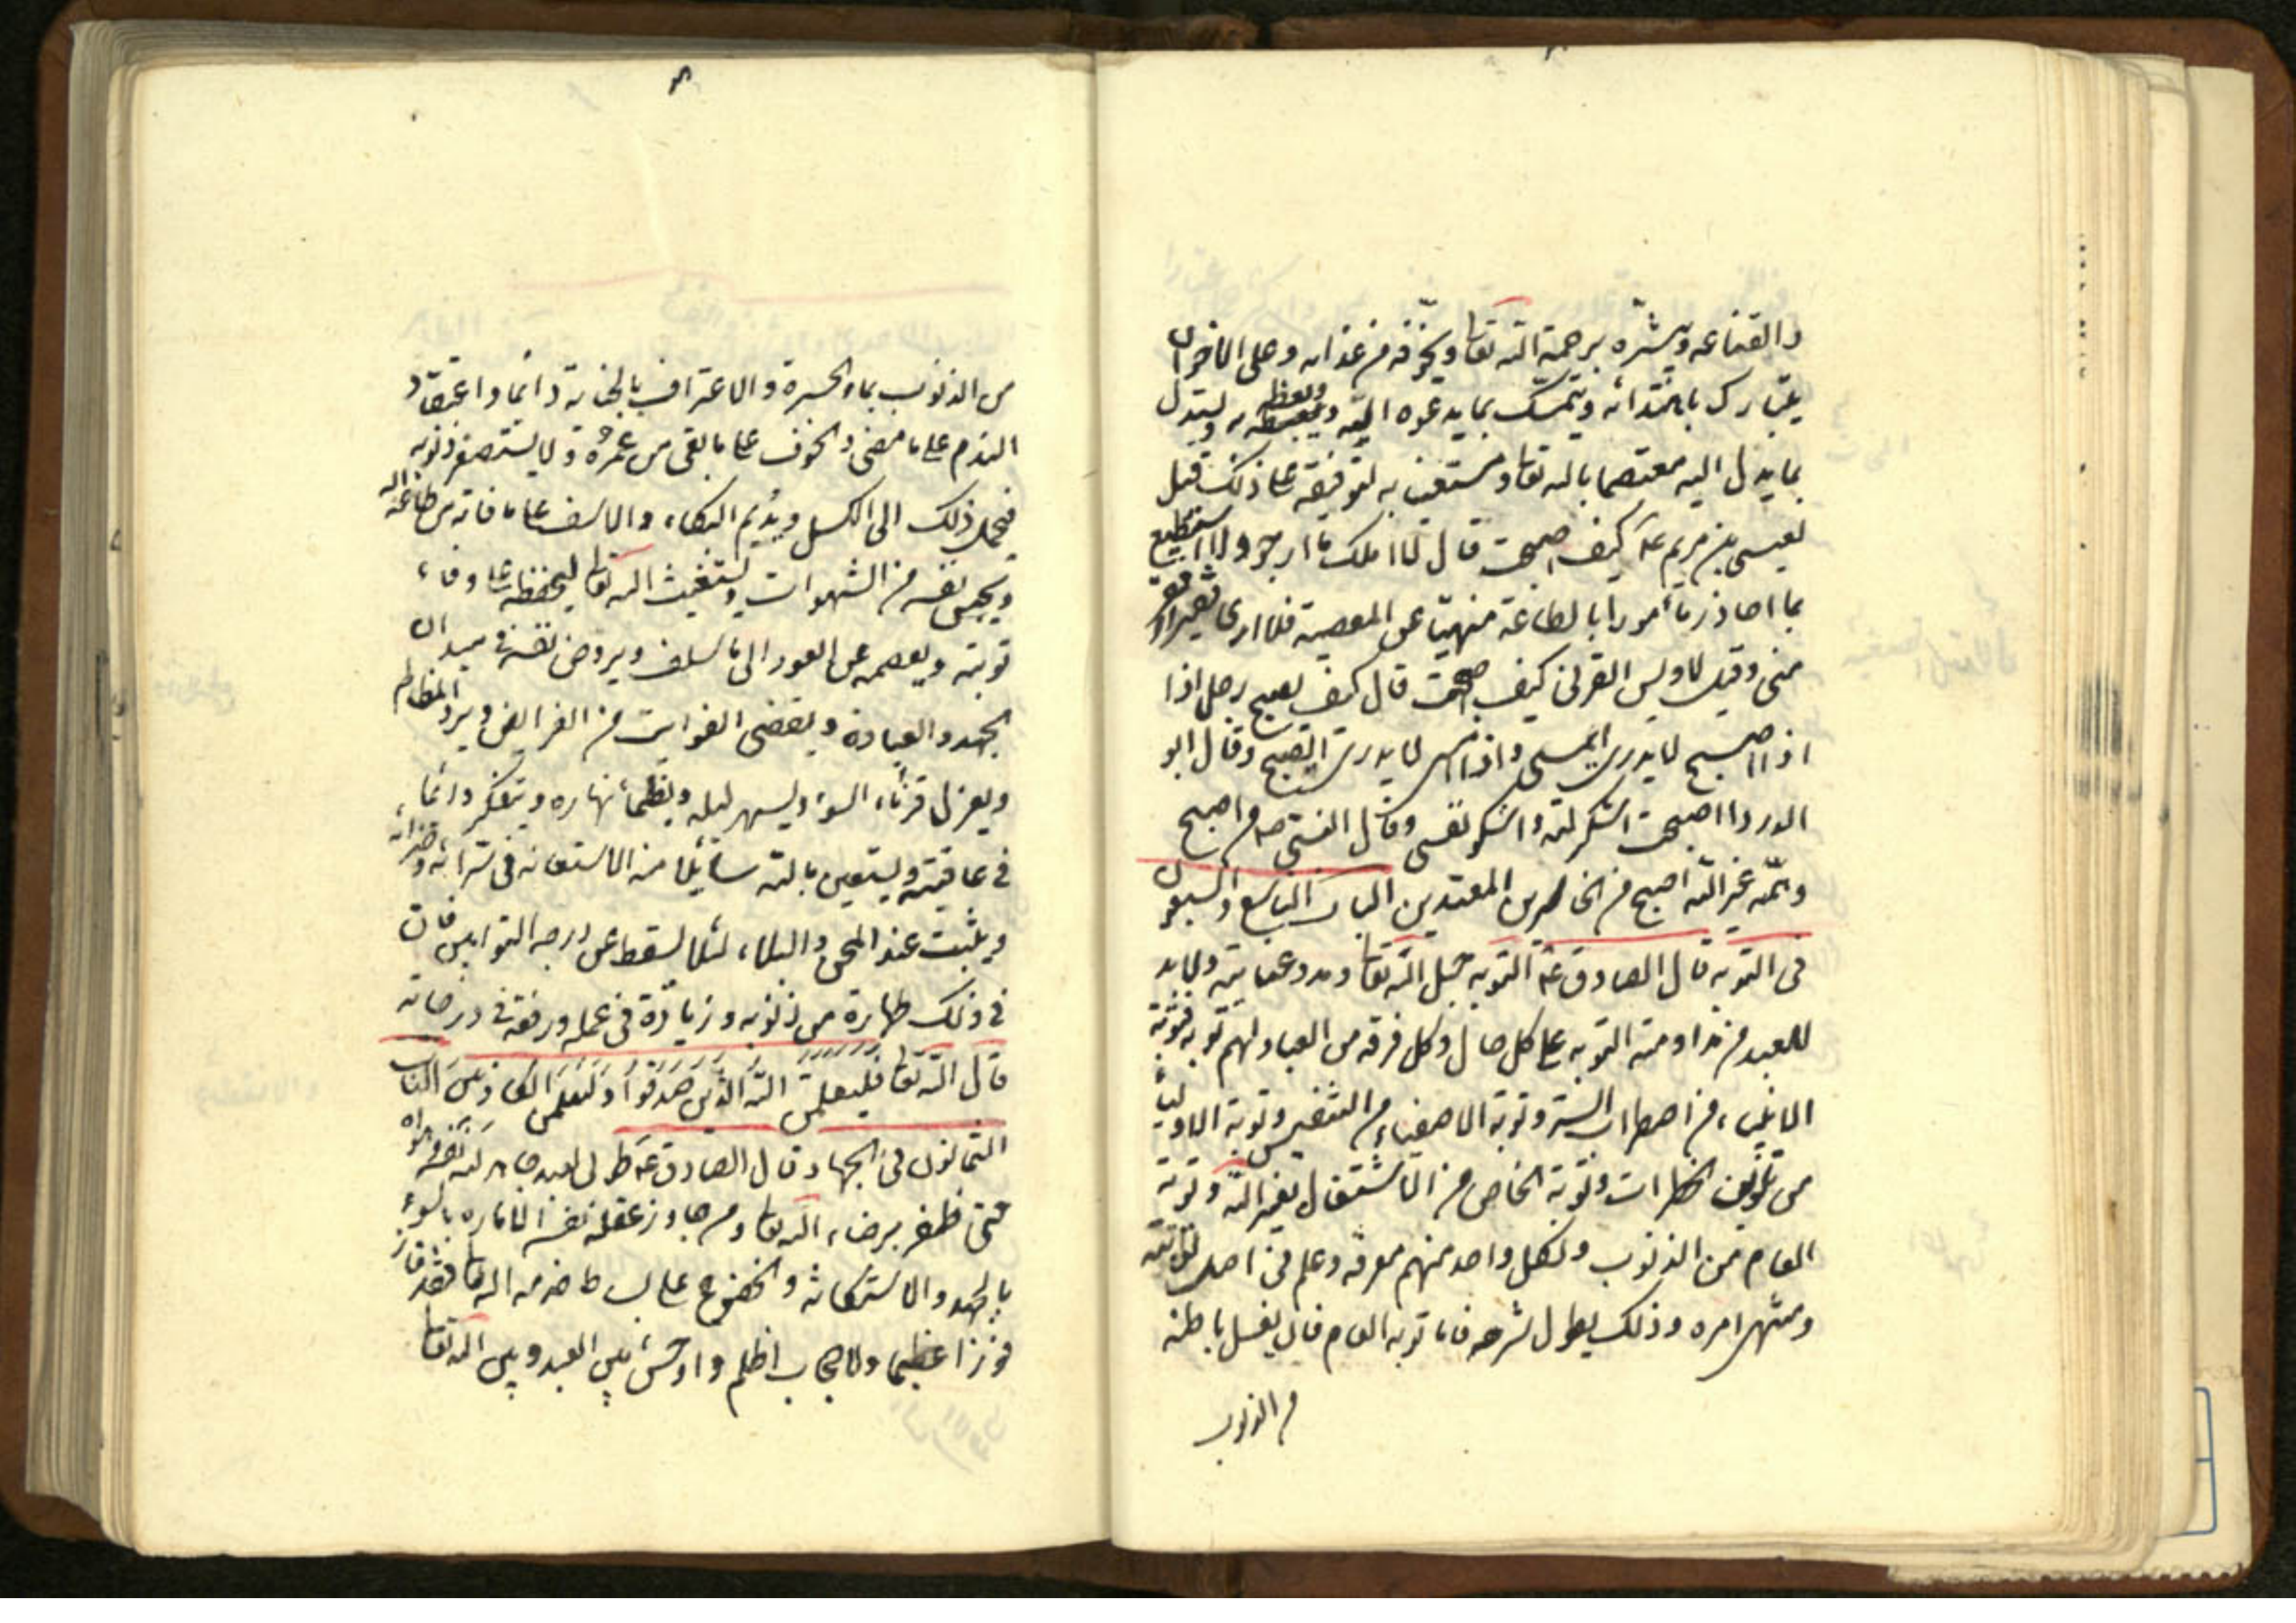 والقناعه ويبشره برحمة الله تعا ويخوفه من عذابه وعلى الاخر ان
يتبارك باهتدائه ويتمسك بما يدعوه اليه ويعظه به ويستدل
بما يدل اليه معتصما بالله تعا ومستعينا به لتوفيقه على ذلك قيل
لعيسى بن مريم ع كيف اصبحت قال لا املك ما ارجو ولا استطيع
بما احاذر مأمورا بالطاعة منهيا عن المعصية فلا ارى فقيرا افقر
منى وقيل لاويس القرنى كيف اصبحت قال كيف يصبح رجل اذا
اذا اصبح لا يدرى ايمسى واذا امسى لا يدرى ايصبح وقال ابو
الدردا اصبحت اشكر لله واشكو نفسى وقال النبى ص من اصبح
وهمه غير الله اصبح من الخاسرين المعتدين الباب التاسع والسبعون
فى التوبه قال الصادق ع التوبه حبل الله تعا ومدد عنايته ولابد
للعبد من مداومة التوبه على كل حال وكل فرقه من العباد لهم توبه فتوبة
الانبياء من اضطراب السر وتوبة الاصفياء من التنفس وتوبة الاولياء
من تلوين الخطرات وتوبة الخاص من الاشتغال بغير الله وتوبة
العام من الذنوب ولكل واحد منهم معرفه وعلم فى اصل توبته
ومنتهى امره وذلك يطول شرحه فاما توبه العام فان يغسل باطنه
من الذنوب
من الذنوب بماء الحسرة والاعتراف بالجناية دائما واعتقاد
الندم على ما مضى والخوف على ما بقى من عمره ولا يستصغر ذنوبه
فيحمله ذلك الى الكسل ويديم البكاء والاسف على ما فاته من طاعة الله
ويحبس نفسه من الشهوات ويستغيث الى الله تعا ليحفظه على وفاء
توبته ويعصمه عن العود الى ما سلف ويروض نفسه فى ميدان
الجهد والعبادة ويقضى الفوايت من الفرايض ويرد المظالم
ويعزل قرناء السوء ويسهر ليله ويظمأ نهاره ويتفكر دائما
فى عاقبته ويستعين بالله سائلا منه الاستعانه فى سرائه وضرائه
ويثبت عند المحن والبلاء لئلا يسقط عن درجه التوابين فان
فى ذلك طهارة من ذنوبه وزيادة فى عمله ورفعة فى درجاته
قال الله تعا فليعلمن الله الذين صدقوا وليعلمن الكاذبين الباب
الثمانون فى الجهاد قال الصادق ع طوبى لعبد جاهد لله نفسه وهواه
حتى ظفر برضاء الله تعا ومن جاوز عقله نفسه الاماره بالسوء
بالجهد والاستكانه والخضوع على بساط خدمه الله تعا فقد فاز
فوزا عظيما ولا حجاب اظلم واوحش بين العبد وبين الله تعا